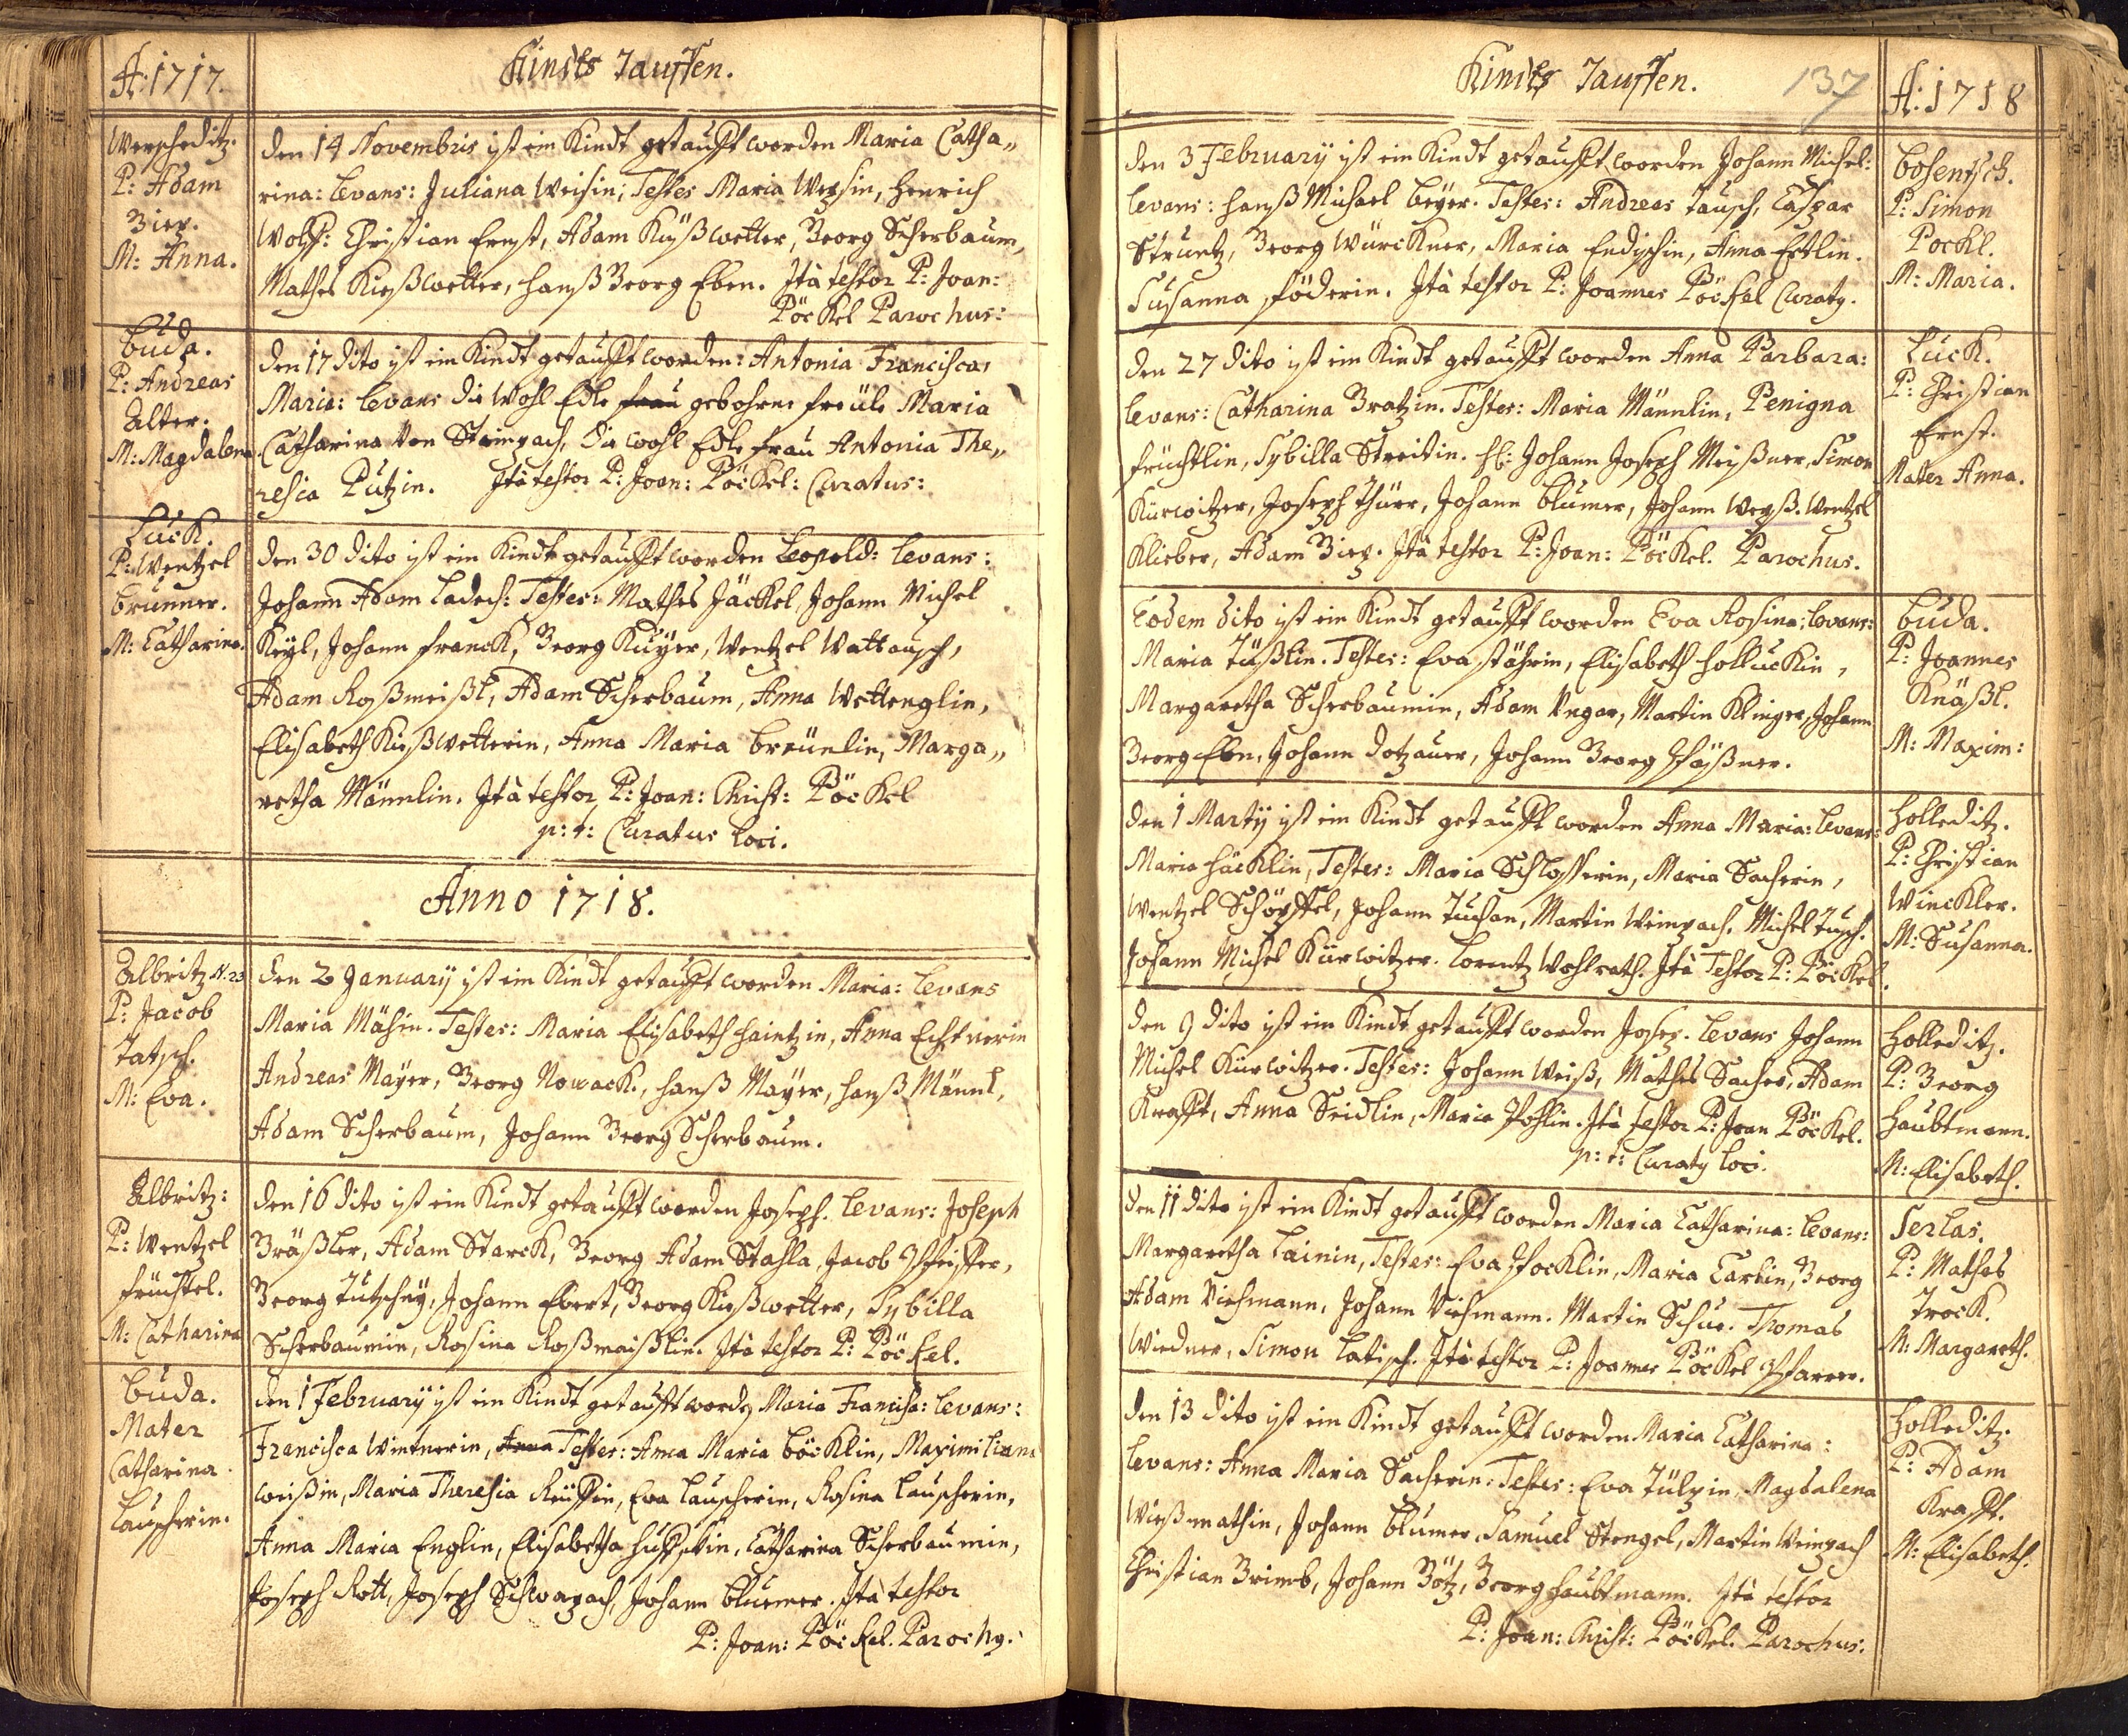 A: 1717.
Kinds Tauffen.
Werscheditz.
P: Adam
Ziep.
M: Anna.
den 14 Novembris ist ein Kindt getaufft worden Maria Catha„
rina: Levans: Juliana Weisin; Testes Maria Weysin, Henrich
Wolf: Christian Ernst, Adam Kießwetter, Georg Scherbaum,
Mathes Kießwetter, Hanß Georg Eben. Ità testor P: Joan:
Pöckel Parochus:
Buda.
P: Andreas
Alter.
M: Magdalena
den 17 dito ist ein Kindt getaufft worden: Antonia Francisca,
Maria: Levans die Wohl Edle frau gebohrne freüle Maria
Catharina Von Steinpach, die wohl Edle frau Antonia The„
resia Putzin. Ità testor P: Joan: Pöckel: Curatus:
Luck.
P: Wentzel
Brunner.
M: Catharina.
den 30 dito ist ein Kindt getaufft worden Leopold: Levans:
Johann Adam Ladech: Testes: Mathes Jäckel, Johann Michel
Keyl, Johann Franck, Georg Kuyer, Wentzel Wattausch,
Adam Roßmeißl, Adam Scherbaum, Anna Wettenglin,
Elisabeth Kießwetterin, Anna Maria Breünlin, Marga„
retha Männlin. Ità testor P: Joan: Christ: Pöckel
p: t: Curatus Loci.
Anno 1718.
Albritz N. 23
P: Jacob
Tatsch.
M: Eva.
den 2 January ist ein Kindt getaufft worden Maria: Levans
Maria Mähin. Testes: Maria Elisabeth Haintzin, Anna
Andreas Mayer, Georg Nowack, Hanß Mayer, Hanß Männl,
Adam Scherbaum, Johann Georg Scherbaum.
Albritz:
P: Wentzel
Früchtel.
M: Catharina
den 16 dito ist ein Kindt getaufft worden Joseph. Levans: Joseph
Gräßler, Adam Starck, Georg Adam Stahla, Jacob Pfeiffer,
Georg Tutschny, Johann Ebert, Georg Kießwetter, Sybilla
Scherbaumin, Rosina Roßmaißlin. Ità testor P: Pöckel.
Buda.
Mater
Catharina
Lauscherin.
den 1 February ist ein Kindt getaufft worden Maria Francisca: Levans:
Francisca Wintnerin, Anna Testes: Anna Maria Böcklin, Maximiliana
Weißin, Maria Theresia Reüssin, Eva Lauscherin, Rosina Lauscherin,
Anna Maria Englin, Elisabetha, Catharina Scherbaumin,
Joseph Rott, Joseph Schwapach, Johann Bluemer. Ità testor
P: Joan: Pöckel. Parochg.
Kinds Tauffen.
137
A: 1718
den 3 February ist ein Kindt getaufft worden Johann Michel:
Levans: Hanß Michael Beyer. Testes: Andreas Tausch, Caspar
Struntz, Georg Würckner, Maria Endischin, Anna Ertlin.
Susanna Föderin. Ità testor P: Joannes Pöckel Curatg.
Bosentsch.
P: Simon
Pockl.
M: Maria.
den 27 dito ist ein Kindt getaufft worden Anna Parbara:
Levans: Catharina Gratzin. Testes: Maria Männlin, Penigna
Früchtlin, Sybilla Streitin. H: Johann Joseph Meißner, Simon
Kürwitzer, Joseph Thürr, Johann Blumer, Johann Weyß. Wentzel
Klieber, Adam Ziep. Ità testor P: Joan: Pöckel. Parochus.
Luck.
P: Christian
Ernst.
Mater Anna.
Eodem dito ist ein Kindt getaufft worden Eva Rosina: Levans:
Maria Tüßlin. Testes: Eva Stährin, Elisabeth Holluckin,
Margaretha Scherbaumin, Adam Ungar, Martin Klinger, Johann
Georg Eben, Johann Dotzauer, Johann Georg Häßner.
Buda.
P: Joannes
Knäßl.
M: Maxim:
den 1 Marty ist ein Kindt getaufft worden Anna Maria: Levans:
Maria Häcklin, Testes: Maria Schlosserin, Maria Sacherin,
Wentzel Schöpffel, Johann Tuchan, Martin Weinpach. Michel Tusch.
Johann Michel Kürwitzer. Lorentz Wohlrath. Ità Testor P: Pöckel.
Holleditz.
P: Christian
Winckler.
M: Susanna.
den 9 dito ist ein Kindt getaufft worden Josep. Levans Johann
Michel Kürwitzer. Testes: Johann Weiß, Mathes Sacher, Adam
Krafft, Anna Seidlin, Maria Pohlin. Ità testor P: Joan Pöckel.
p: t: Curatg Loci.
Holleditz.
P: Georg
Haubtmann.
M: Elisabeth.
den 11 dito ist ein Kindt getaufft worden Maria Catharina: Levans:
Margaretha Lainin, Testes: Eva Stocklin, Maria Carlin, Georg
Adam Viehmann, Johann Viehmann. Martin Schue. Thomas
Wiedner, Simon Latisch. Ità testor P: Joannes Pöckel Pfarrer.
Serlas.
P: Mathes
Trock.
M: Margareth.
den 13 dito ist ein Kindt getaufft worden Maria Catharina:
Levans: Anna Maria Sacherin: Testes: Eva Tülpin, Magdalena
Wießnathin, Johann Blumer, Samuel Stengel, Martin Weinpach
Christian Grimb, Johann Götz, Georg Haubtmann. Ità testor
P: Joan: Christ: Pöckel. Parochus:
Holleditz.
P: Adam
Krafft.
M: Elisabeth.